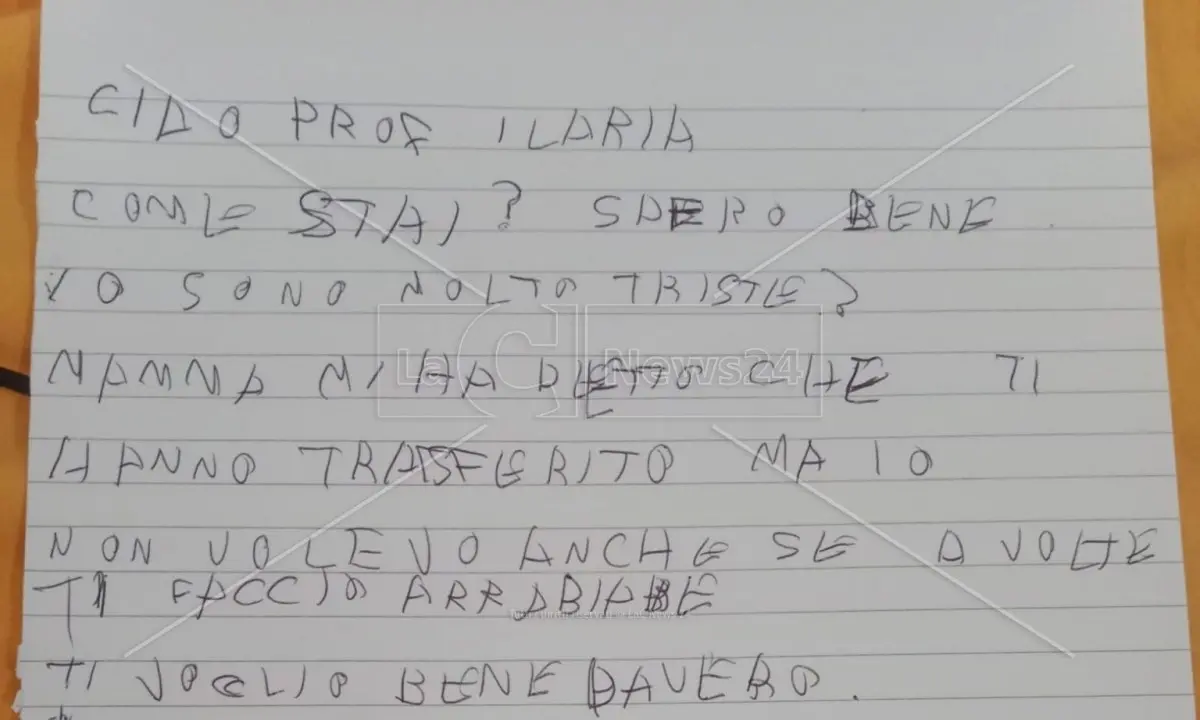 CIAO PROF ILARIA
COME STAI? SPERO BENE
IO SONO MOLTO TRISTE?
MAMMA MI HA DETTO CHE TI
HANNO TRASFERITO MA IO
NON VOLEVO ANCHE SE A VOLTE
TI FACCIO ARRABIARE
TI VOGLIO BENE DAVERO.
LaC News24